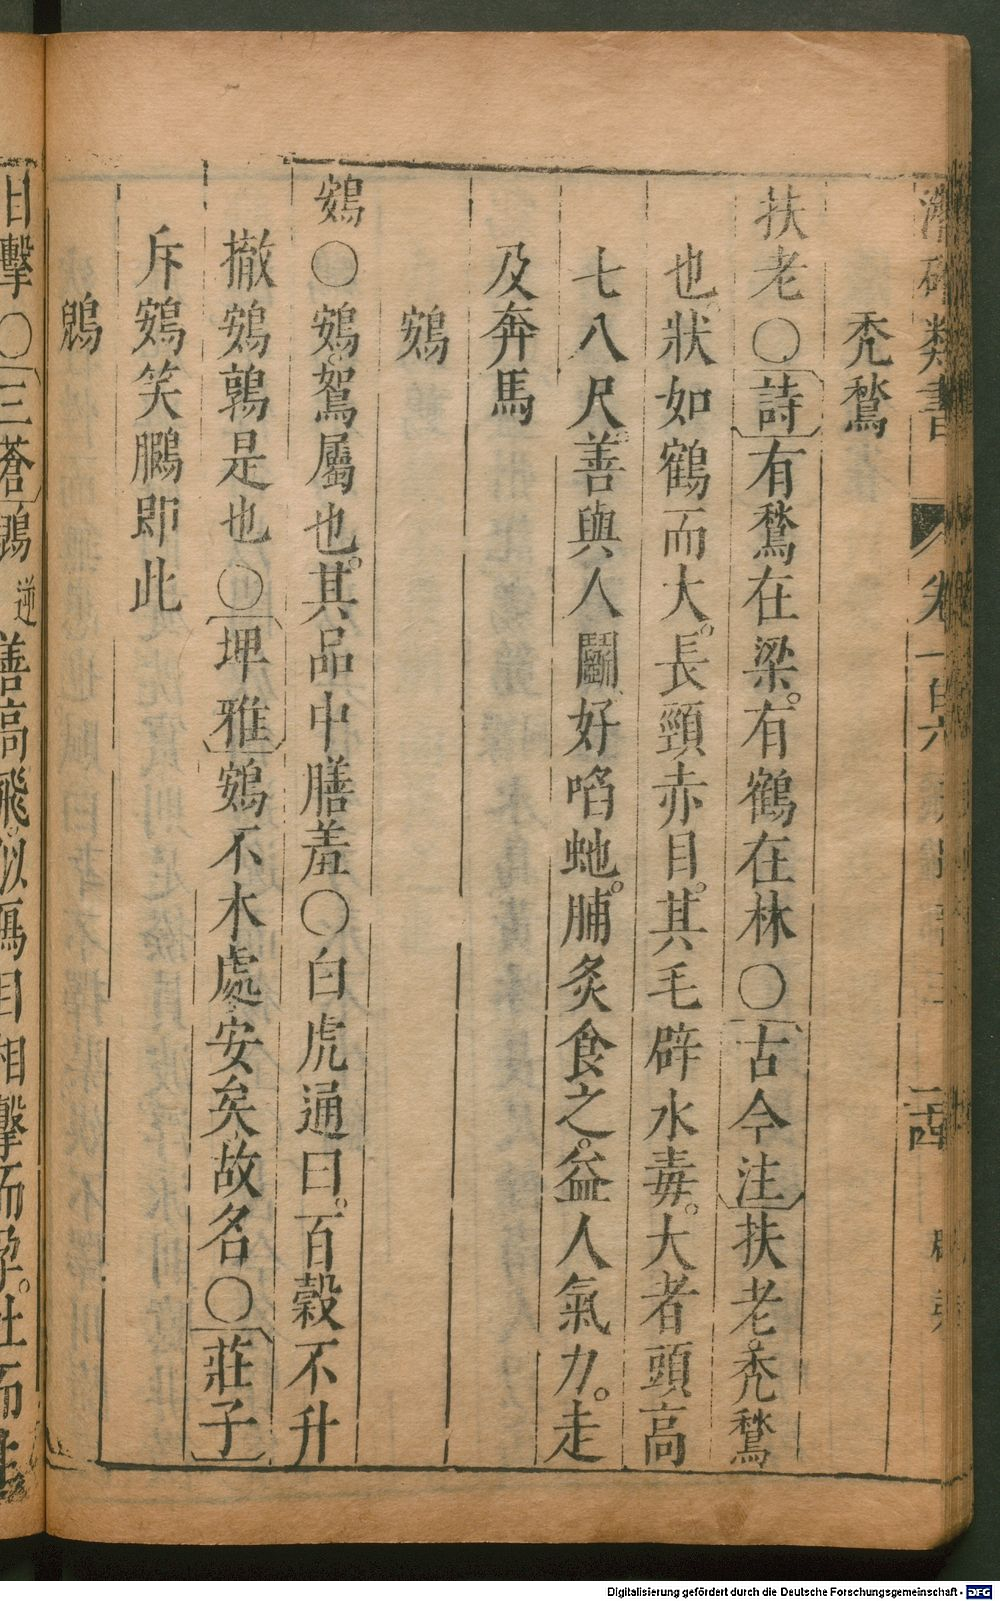 潛確類書 卷一百六 二十四
禿鶖
扶老○詩有鶖在梁。有鶴在林○古今注扶老。禿鶖
也狀如鶴而大。長頸赤目。其毛辟水毒。大者頭高
七八尺。善與人鬬好啗虵。脯炙食之。益人氣力。走
及奔馬
鴳
鴳○鴳。鴽屬也。其品中膳羞○白虎通曰。百穀不升
撤鴳鶉是也○埤雅鴳不木處安矣故名○莊子
斥鴳笑鵬即此
鶂
相擊○三蒼鶂逆善高飛。似鴈目相擊而孕。吐而生
Digitalisierung gefördert durch die Deutsche Forschungsgemeinschaft - DFG